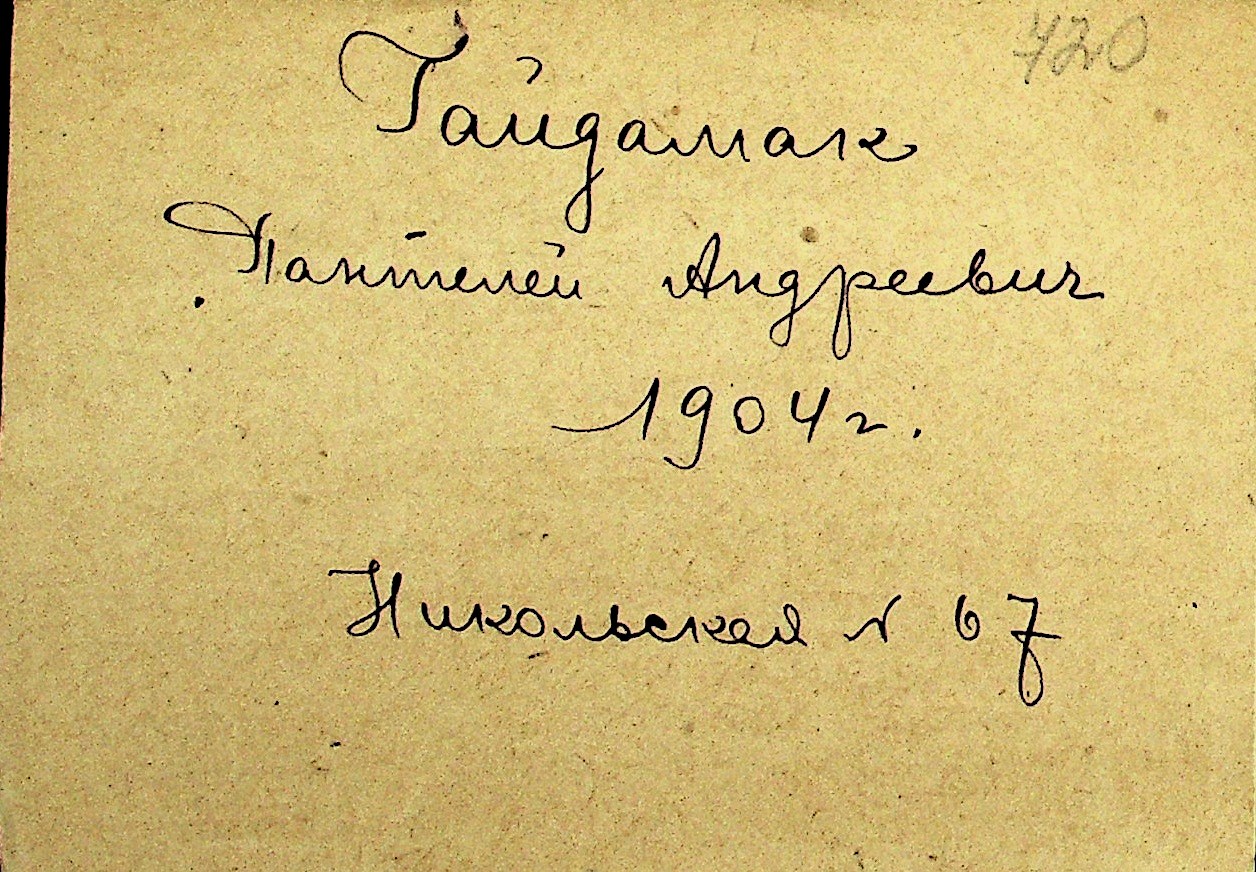 720
Гайдамак
Пантелей Андреевич
1904 г.
Никольская № 67